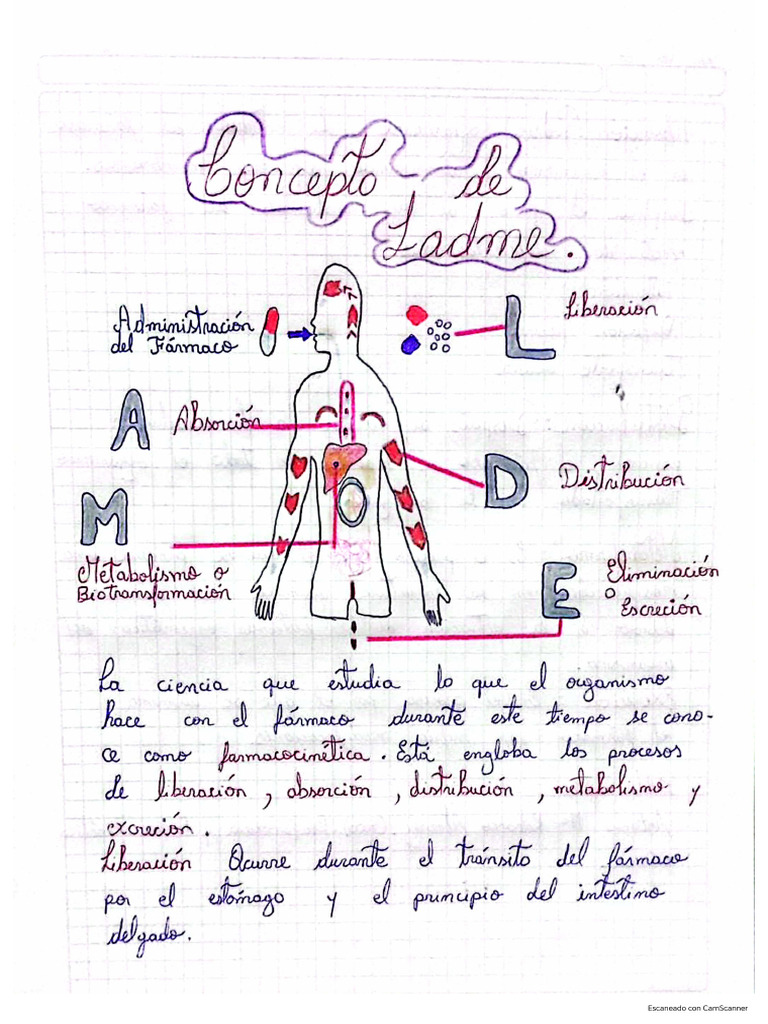 Concepto de
Ladme.
Administración
del Fármaco
L
Liberación
A
Absorción
D
Distribución
M
Metabolismo o
Biotransformación
E
Eliminación
o
Escreción
La ciencia que estudia lo que el organismo
hace con el fármaco durante este tiempo se cono-
ce como farmacocinética. Está engloba los procesos
de liberación, absorción, distribución, metabolismo y
excreción.
Liberación Ocurre durante el tránsito del fármaco
por el estómago y el principio del intestino
delgado.
Escaneado con CamScanner